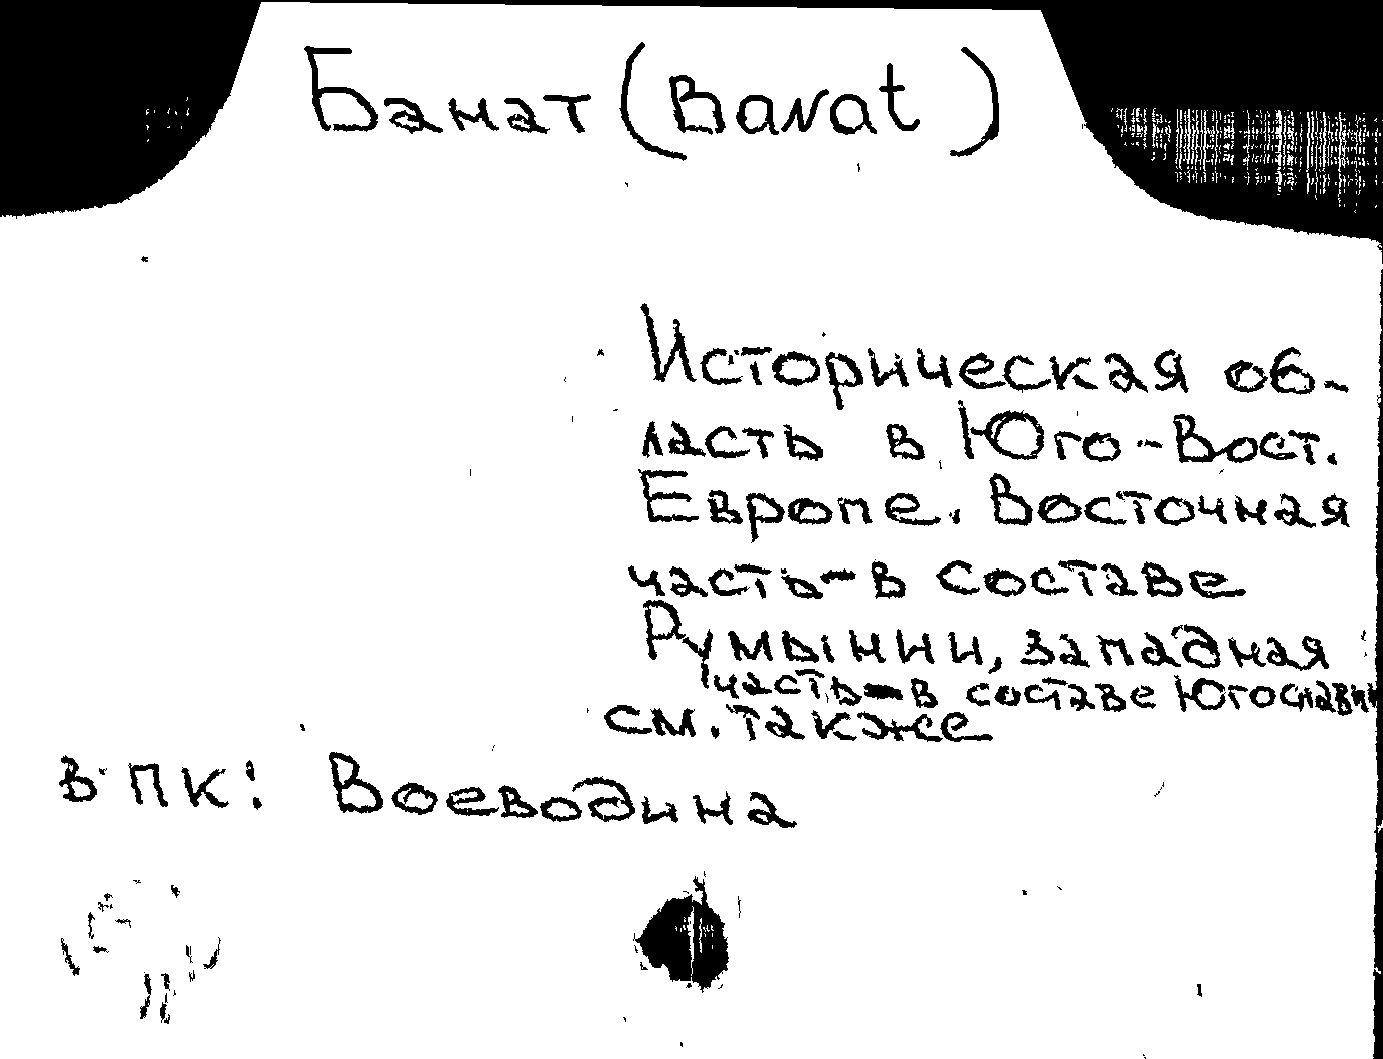 Банат (Banat)
Историческая об-
ласть в Юго-Вост.
Европе. Восточная
часть - в составе
Румынии, западная
часть - в составе Югославии
см. также
в ПК: Воеводина